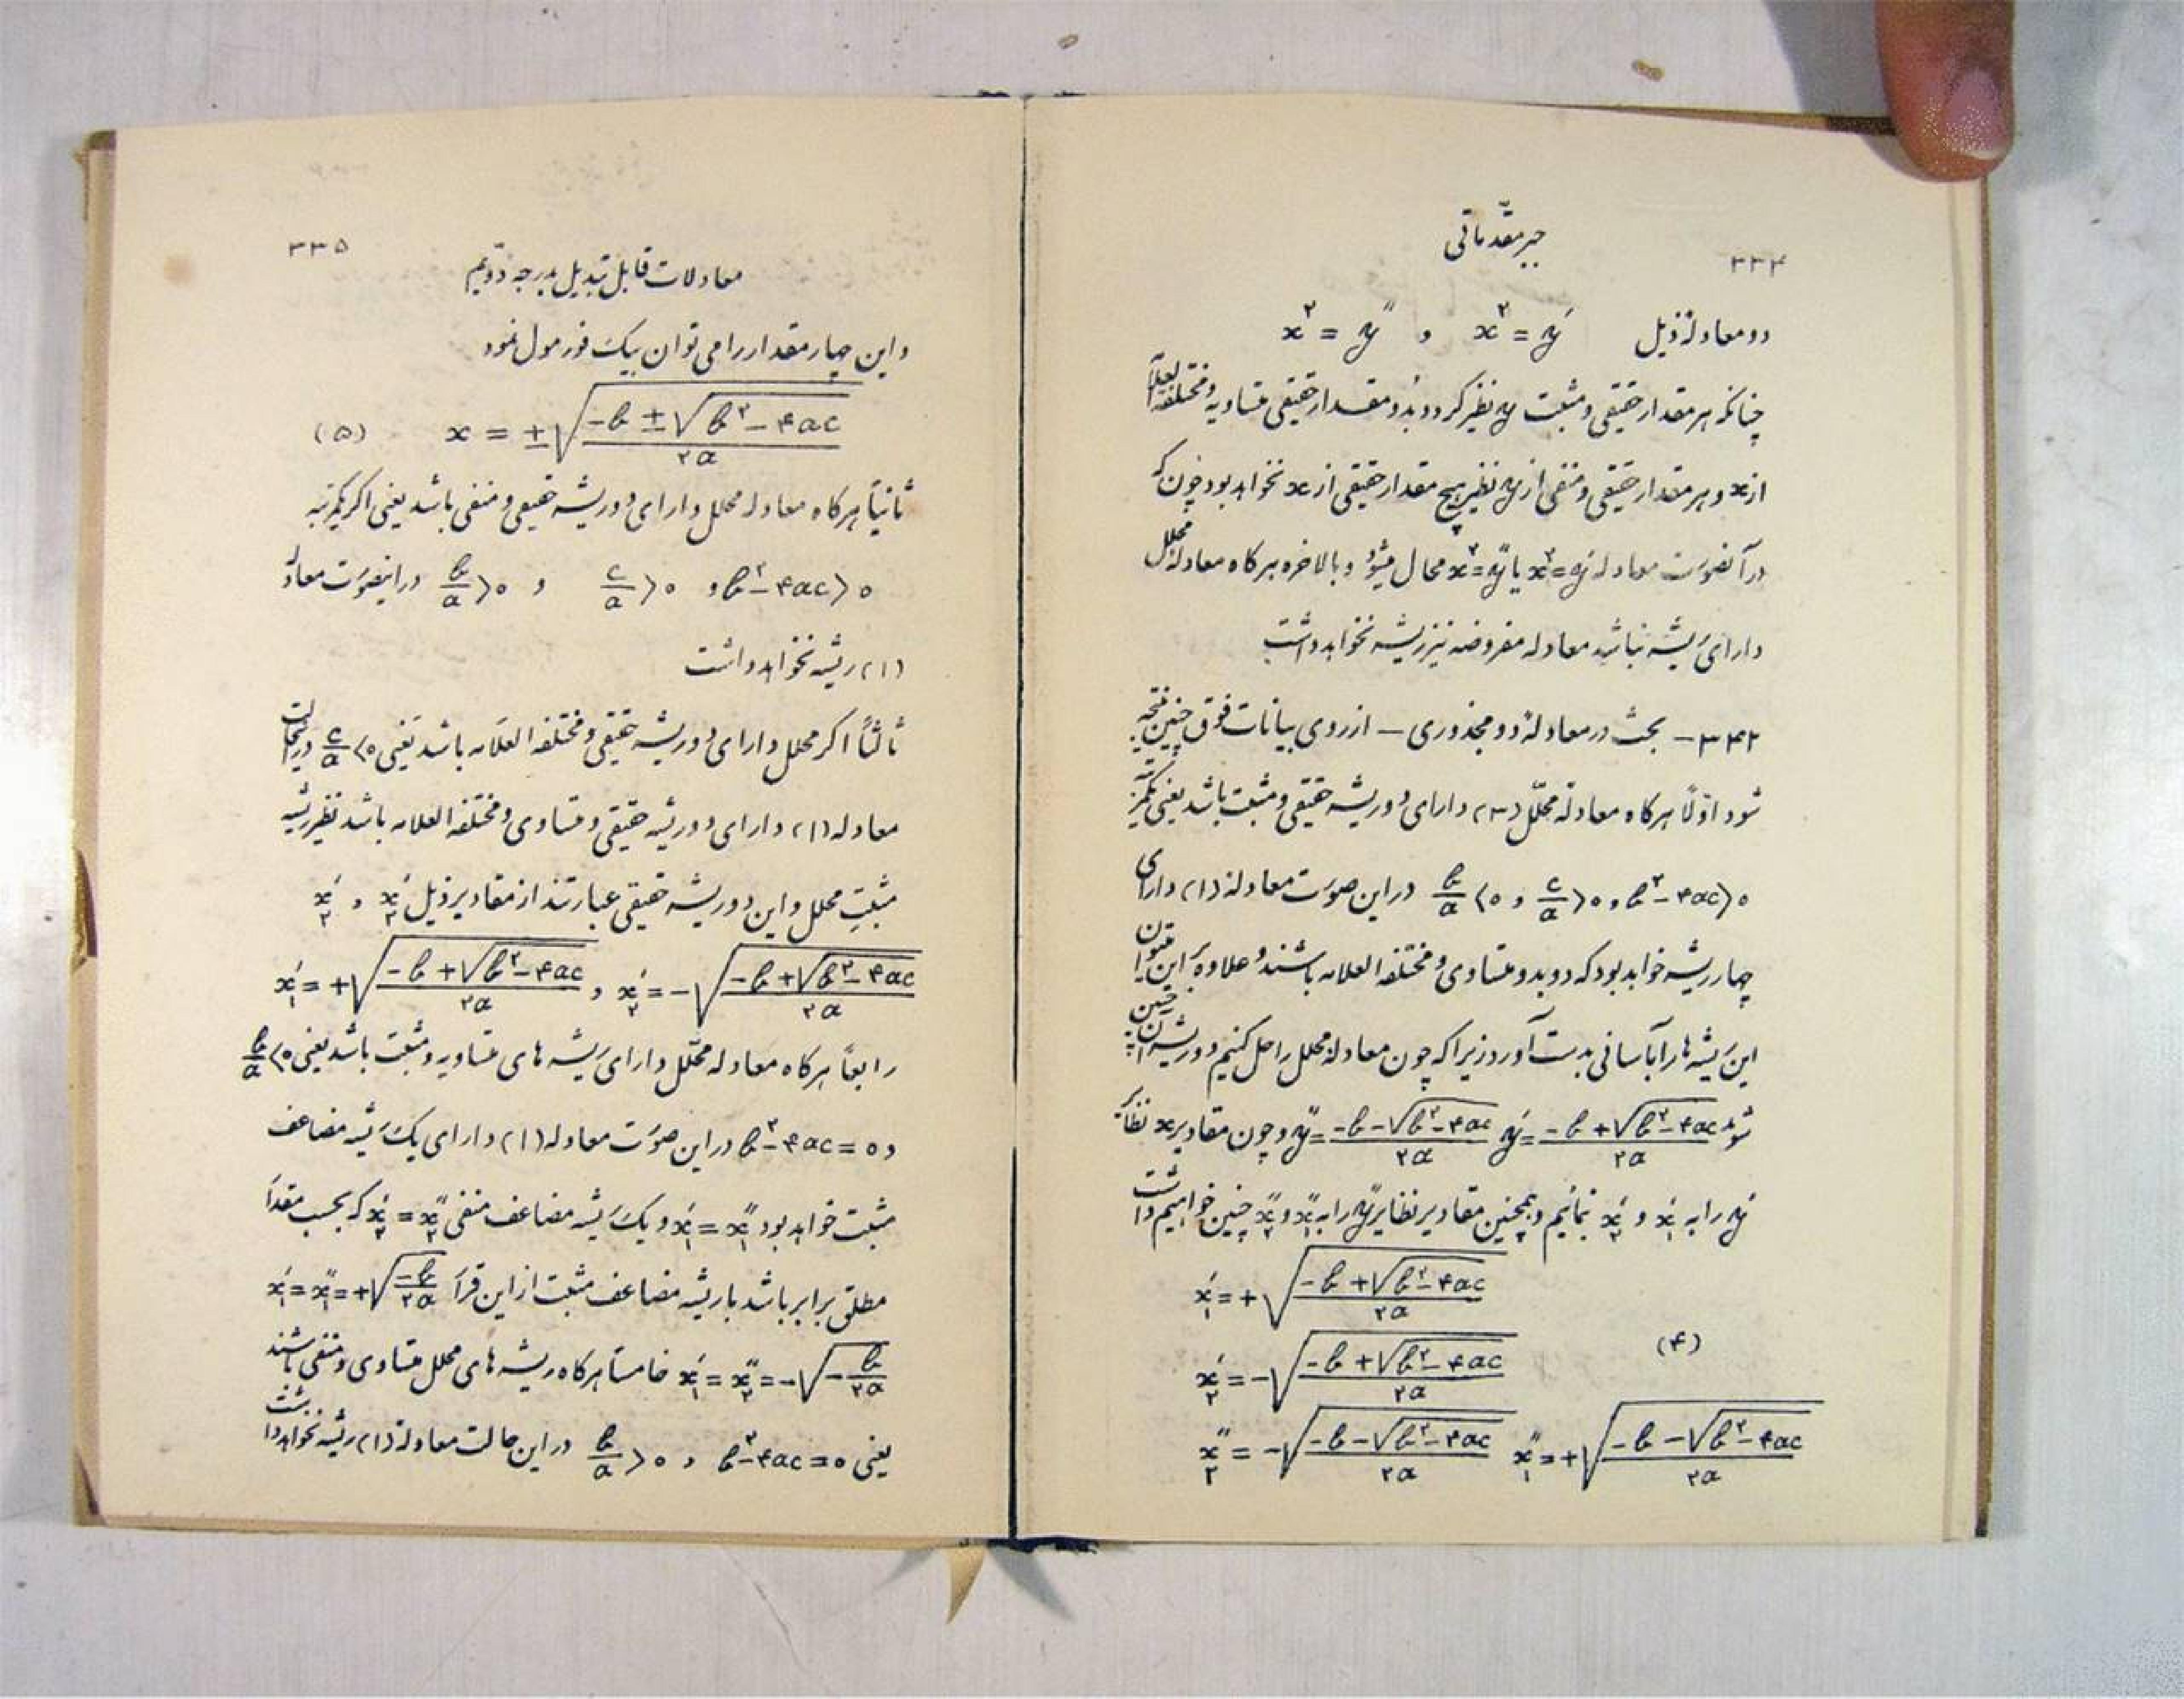 ۳۳۴
جبر مقدماتی
دو معادلهٔ ذیل x² = y′ و x² = y″
چنانکه هر مقدار حقیقی و مثبت y نظیر کردد بدو مقدار حقیقی متساویه و مختلفة العلامه
از x و هر مقدار حقیقی و منفی از y نظیر هیچ مقدار حقیقی از x نخواهد بود چون که
در آنصورت معادله x² = y′ یا x² = y″ محال میشود و بالاخره هرکاه معادلهٔ محلل
دارای ریشه نباشد معادله مفروضه نیز ریشه نخواهد داشت
۳۴۲ – بحث در معادلهٔ دو مجذوری – از روی بیانات فوق چنین نتیجه
شود اوّلاً هرکاه معادلهٔ محلّل (۳) دارای دو ریشه حقیقی و مثبت باشد یعنی
b² – ۴ac > ۰ و c/a > ۰ و b/a < ۰ در این صورت معادلهٔ (۱) دارای
چهار ریشه خواهد بود که دو بدو متساوی و مختلفة العلامه باشند و علاوه بر این میتوان
این ریشه‌ها را بآسانی بدست آورد زیرا که چون معادلهٔ محلل را حل کنیم دو ریشه آن چنین
شود y′ = (–b + √(b² – ۴ac))/۲a y″ = (–b – √(b² – ۴ac))/۲a و چون مقادیر x نظایر
y′ را به x′₁ و x′₂ بنمائیم و همچنین مقادیر نظایر y″ را به x″₁ و x″₂ چنین خواهیم داشت
x′₁ = +√((–b + √(b² – ۴ac))/۲a)
(۴)
x′₂ = –√((–b + √(b² – ۴ac))/۲a)
x″₁ = +√((–b – √(b² – ۴ac))/۲a) x″₂ = –√((–b – √(b² – ۴ac))/۲a)
۳۳۵
معادلات قابل تبدیل بدرجه دوّیم
و این چهار مقدار را می توان بیک فورمول نمود
(۵) x = ±√((–b ± √(b² – ۴ac))/۲a)
ثانیاً هرکاه معادله محلل دارای دو ریشه حقیقی و منفی باشد یعنی اکر
b² – ۴ac > ۰ و c/a > ۰ و b/a > ۰ در اینصورت معادلهٔ
(۱) ریشه نخواهد داشت
ثالثاً اکر محلل دارای دو ریشه حقیقی و مختلفة العلامه باشد یعنی c/a < ۰ در اینحالت
معادله (۱) دارای دو ریشه حقیقی و متساوی و مختلفة العلامه باشد نظیر ریشه
مثبتِ محلل و این دو ریشه حقیقی عبارتند از مقادیر ذیل x′₂ و x′₂
x′₁ = +√((–b + √(b² – ۴ac))/۲a) و x′₂ = –√((–b + √(b² – ۴ac))/۲a)
رابعاً هرکاه معادله محلّل دارای ریشه های متساویه و مثبت باشد یعنی b/a < ۰
و b² – ۴ac = ۰ در این صورت معادله (۱) دارای یک ریشه مضاعف
مثبت خواهد بود x′₁ = x″₁ و یک ریشه مضاعف منفی x′₂ = x″₂ که بحسب مقدار
مطلق برابر باشد با ریشه مضاعف مثبت از این قرار x′₁ = x″₁ = +√(–b/۲a)
x′₁ = x″₂ = –√(–b/۲a) خامساً هرکاه ریشه های محلل متساوی و منفی باشند
یعنی b² – ۴ac = ۰ و b/a > ۰ در این حالت معادلهٔ (۱) ریشه نخواهد داشت